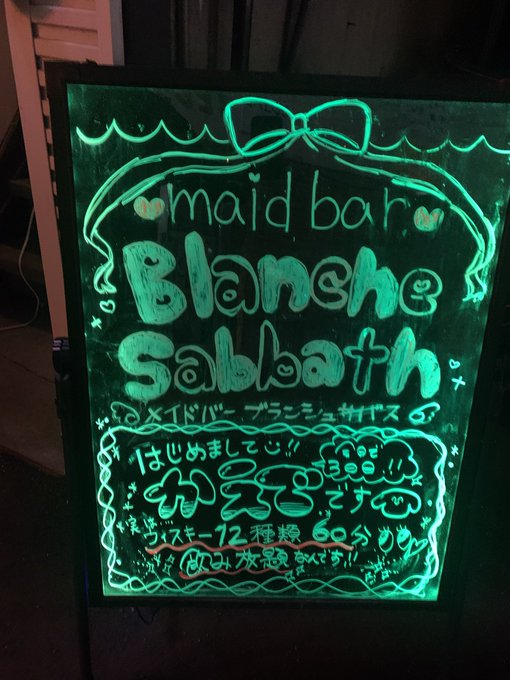 maid bar
Blanche
Sabbath
メイドバー ブランシュサバス
はじめまして!!
かえでです
実は…
ウィスキー12種類 60分
飲み放題なんです!!